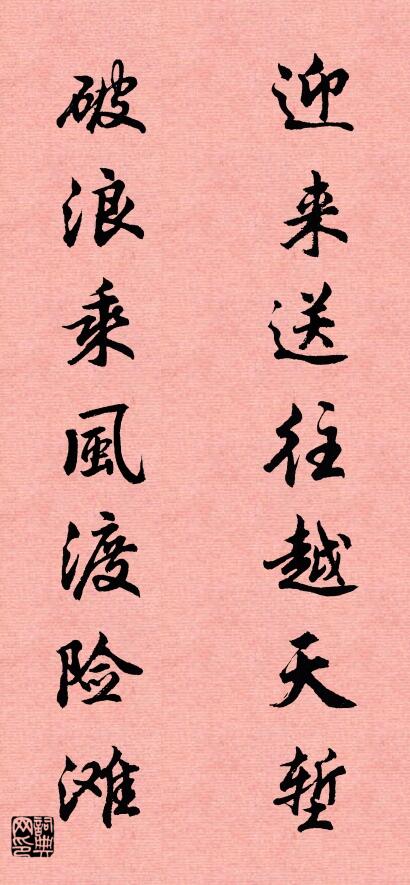 迎来送往越天堑
破浪乘風渡险滩
詞典网印